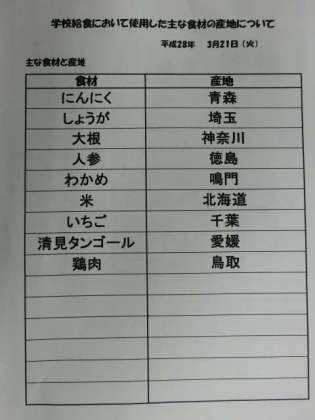 学校給食において使用した主な食材の産地について
平成28年 3月21日（火）
主な食材と産地
食材 産地
にんにく 青森
しょうが 埼玉
大根 神奈川
人参 徳島
わかめ 鳴門
米 北海道
いちご 千葉
清見タンゴール 愛媛
鶏肉 鳥取